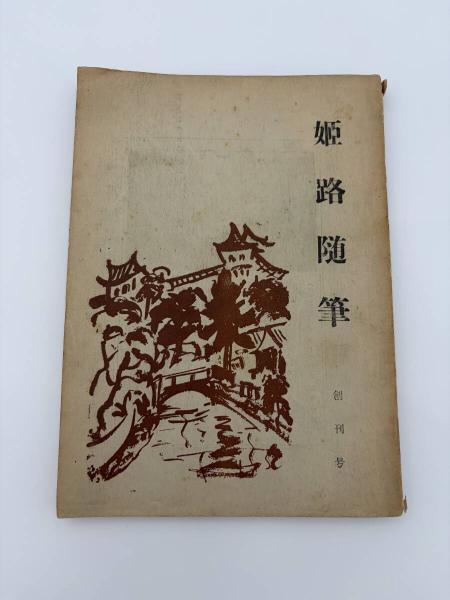 姫路随筆
創刊号